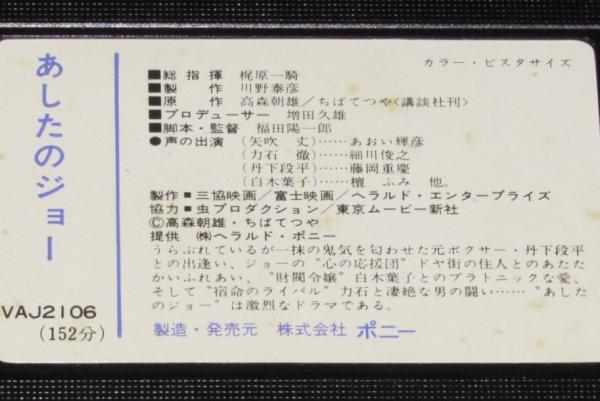 あしたのジョー
VAJ2106
(152分)
カラー・ビスタサイズ
■総指揮 梶原一騎
■製作 川野泰彦
■原作 高森朝雄/ちばてつや<講談社刊>
■プロデューサー 増田久雄
■脚本・監督 福田陽一郎
●声の出演 (矢吹 丈)……あおい輝彦
(力石 徹)……細川俊之
(丹下段平)……藤岡重慶
(白木葉子)……檀 ふみ 他。
製作=三協映画/富士映画/ヘラルド・エンタープライズ
協力=虫プロダクション/東京ムービー新社
©高森朝雄・ちばてつや
提供 ㈱ヘラルド・ポニー
うらぶれているが一抹の鬼気を匂わせた元ボクサー・丹下段平
との出逢い、ジョーの“心の応援団”ドヤ街の住人とのあたた
かいふれあい、“財閥令嬢”白木葉子とのプラトニックな愛、
そして“宿命のライバル”力石と凄絶な男の闘い……“あした
のジョー”は激烈なドラマである。
製造・発売元 株式会社 ポニー